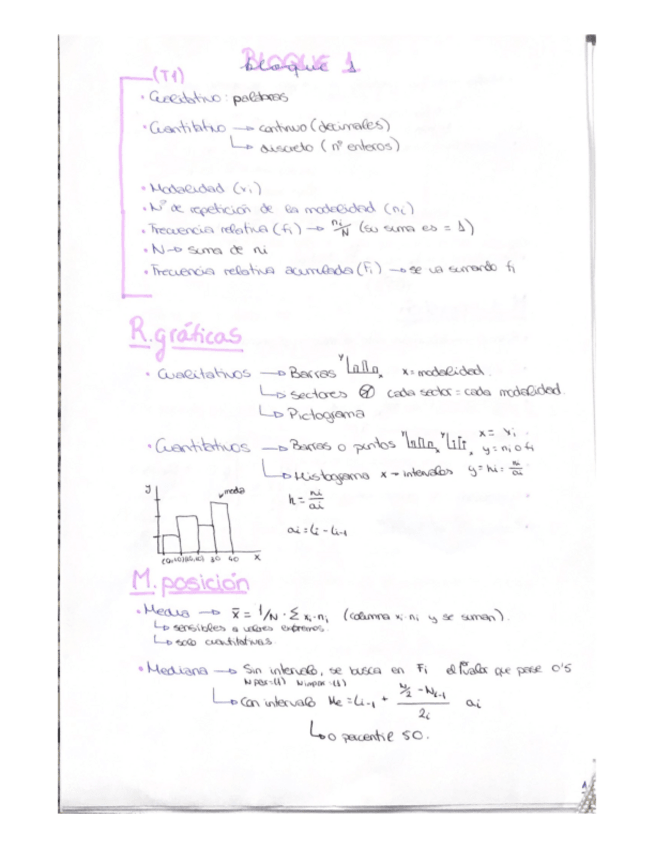 Bloque 1
(T1)
· Cualitativo: palabras
· Cuantitativo → continuo (decimales)
↳ discreto (nº enteros)
· Modalidad (xi)
· Nº de repetición de la modalidad (ni)
· Frecuencia relativa (fi) → ni/N (su suma es = 1)
· N → suma de ni
· Frecuencia relativa acumulada (Fi) → se va sumando fi
R. gráficas
· Cualitativos → Barras y x x = modalidad.
↳ Sectores cada sector = cada modalidad.
↳ Pictograma
· Cuantitativos → Barras o puntos x = xi
y = ni o fi
↳ Histograma x → intervalos y = hi = ni/ai
y moda h = ni/ai
ai = Li - Li-1
30 40 x
M. posición
· Media → x̄ = 1/N · Σ xi·ni (columna xi·ni y se suman).
↳ sensibles a valores extremos.
↳ solo cuantitativas.
· Mediana → Sin intervalo, se busca en Fi el 1er valor que pase 0'5
N par:(1) N impar:(1)
↳ Con intervalo Me = Li-1 + (N/2 - Ni-1)/2i ai
↳ o percentil 50.